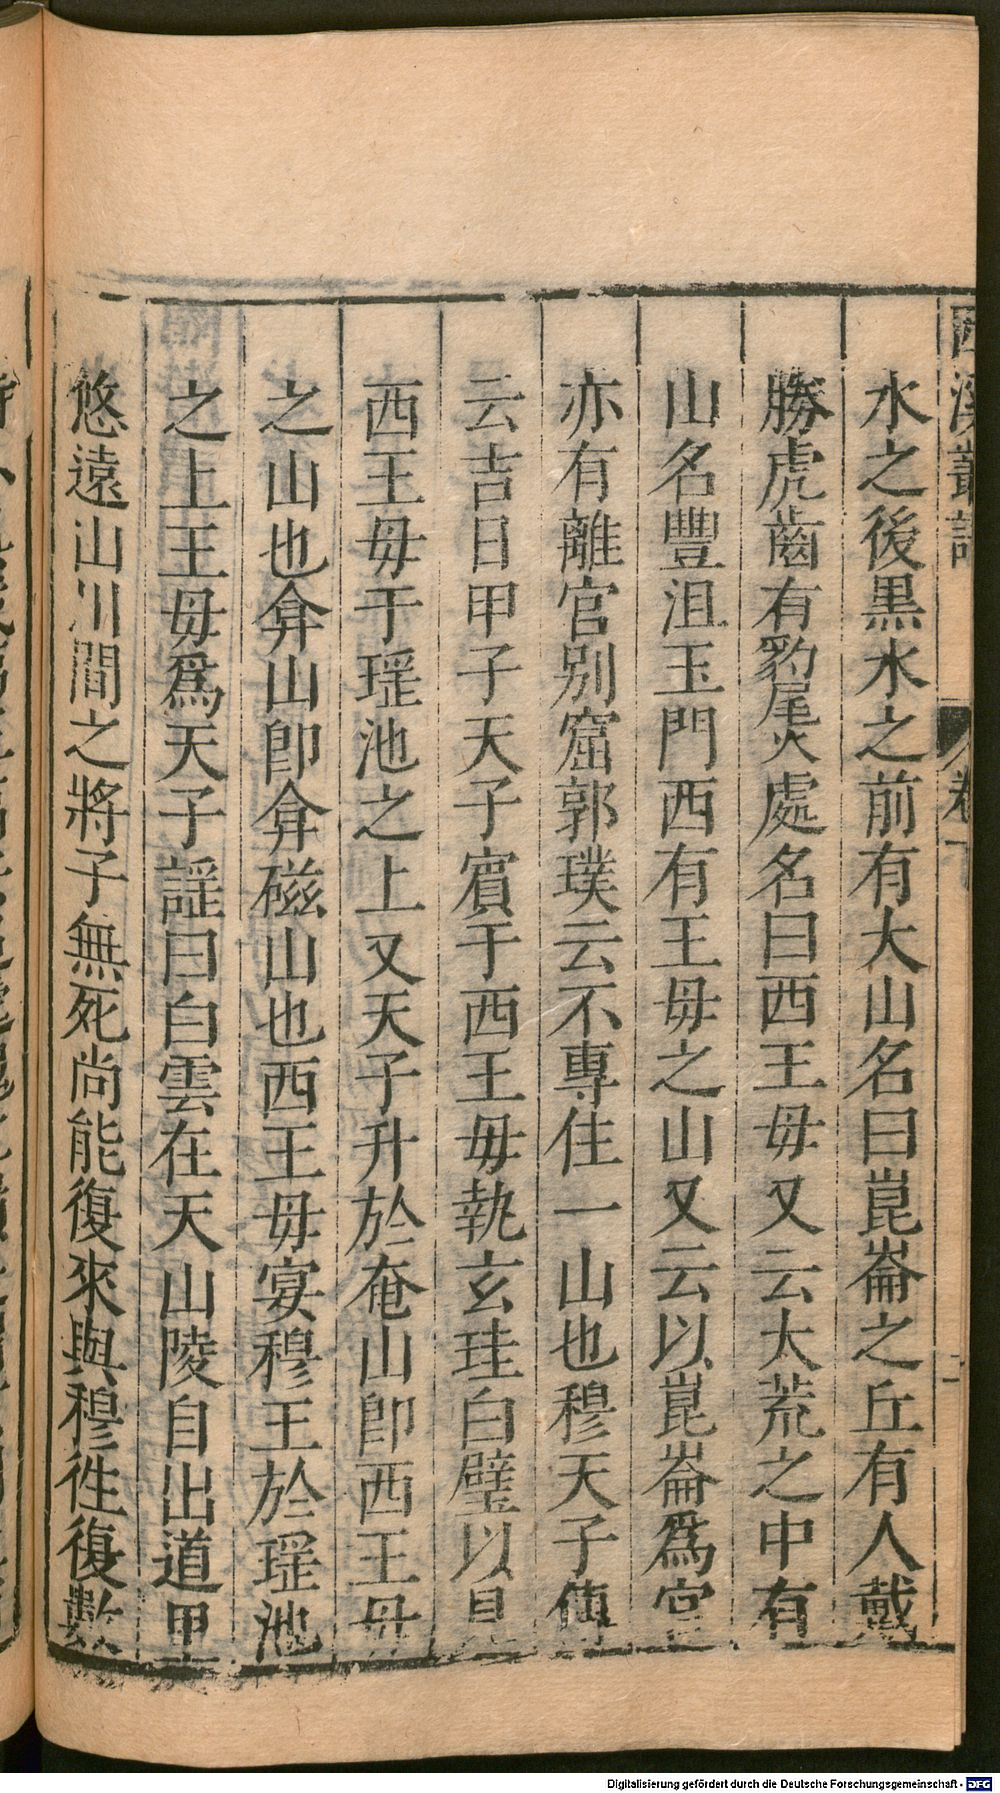 西溪叢語 卷下
水之後黒水之前有大山名曰崑崙之丘有人戴
勝虎齒有豹尾火處名曰西王母又云太荒之中有
山名豐沮玉門西有王母之山又云以崑崙爲宫
亦有離官别窟郭璞云不專住一山也穆天子傳
云吉日甲子天子賓于西王母執玄珪白璧以見
西王母于瑶池之上又天子升於奄山即西王母
之山也弇山即弇磁山也西王母宴穆王於瑶池
之上王母爲天子謡曰白雲在天山陵自出道里
悠遠山川間之將子無死尚能復來與穆徃復數
Digitalisierung gefördert durch die Deutsche Forschungsgemeinschaft - DFG